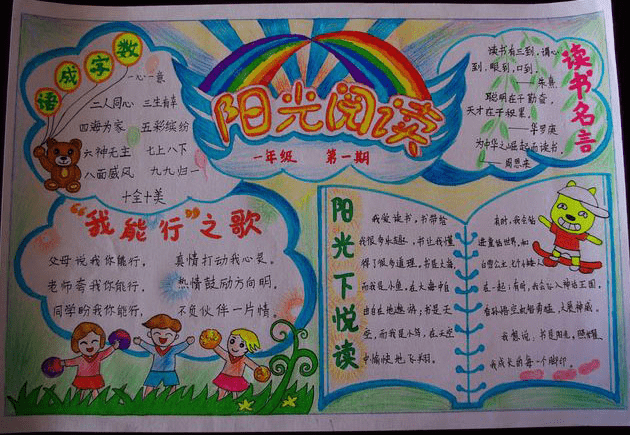 数字成语
一心一意
二人同心 三生有幸
四海为家 五彩缤纷
六神无主 七上八下
八面威风 九九归一
十全十美
阳光阅读
一年级 第一期
读书名言
读书有三到，谓心
到，眼到，口到。
——朱熹
聪明在于勤奋，
天才在于积累。
——华罗庚
为中华之崛起而读书。
——周恩来
“我能行”之歌
父母说我你能行， 真情打动我心灵。
老师夸我你能行， 热情鼓励方向明。
同学盼我你能行， 不负伙伴一片情。
阳光下悦读
我爱读书，书带给
我很多乐趣，书让我懂
得了很多道理。书是大海，
而我是小鱼，在大海中自
由自在地遨游；书是天
空，而我是小鸟，在天空
中愉快地飞翔。
有时，我会钻
进童话世界，和
白雪公主、七个小矮人
在一起；有时，我会 入神话王国，
看孙悟空 ，大显神威。
我想说：书是阳光，照耀
我成长的每一个脚印。